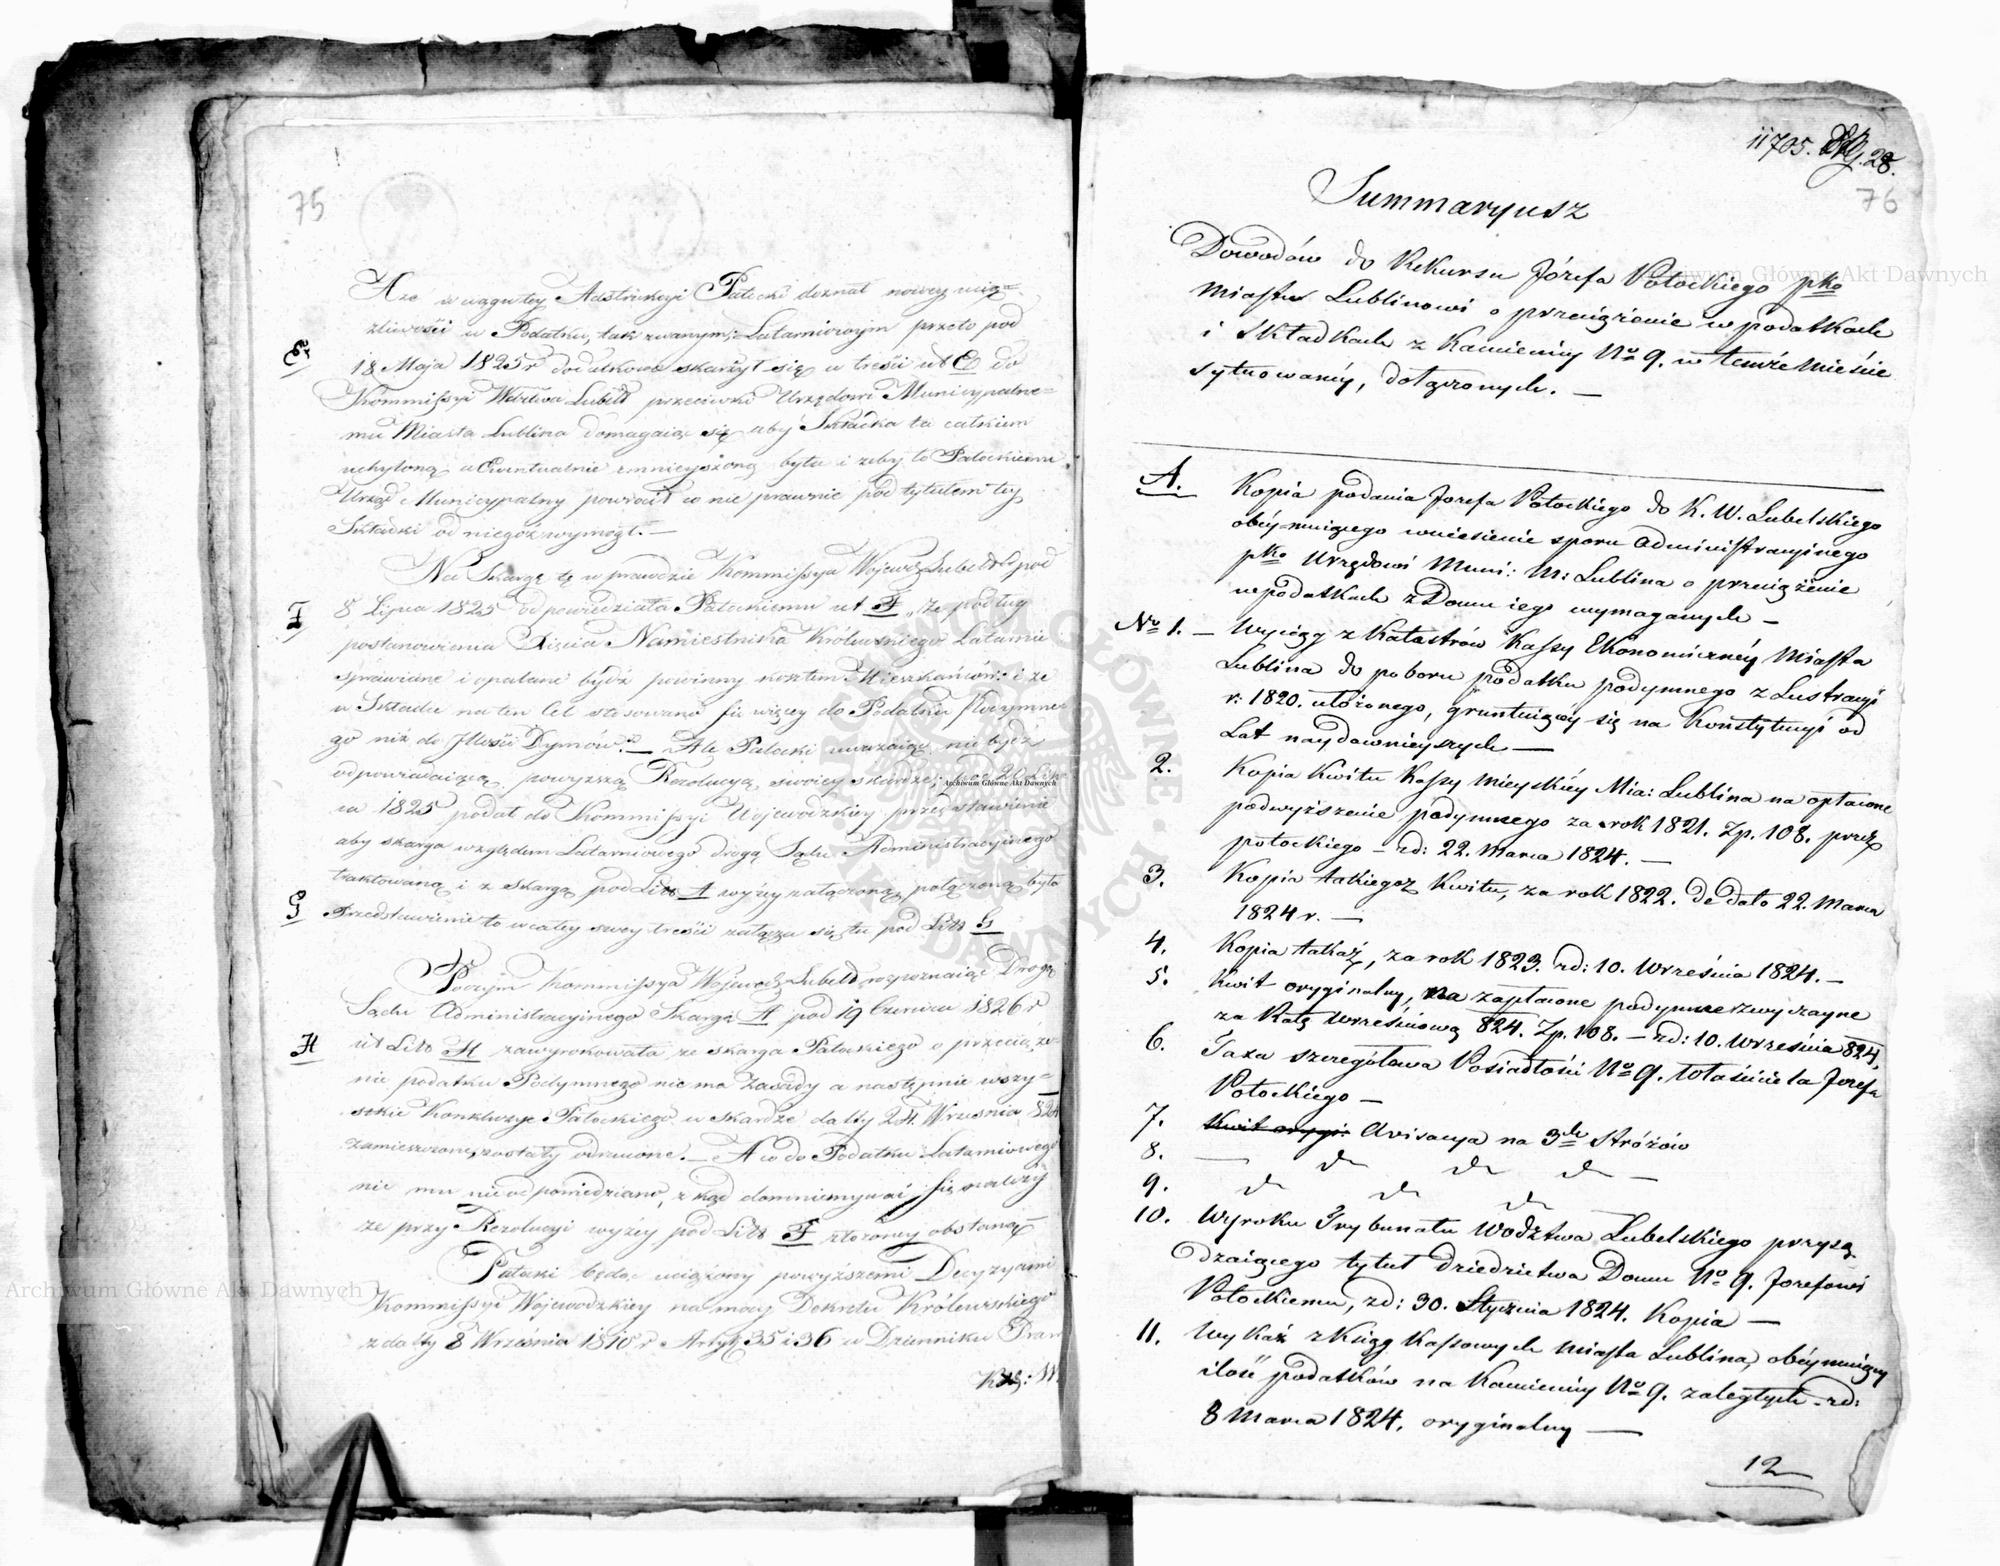 75
A że w ciągu tey Adstrukcyi Patocki doznał nowey ucią=
żliwości w Podatku, tak zwanym, Latarniowym przeto pod
E. 18 Maja 1825 r dodatkowo skarżył się w treści ut E do
Kommissyi Wdztwa Lubel. przeciwko Urzędowi Municypalne=
mu Miasta Lublina domagaiąc się aby Składka ta całkiem
uchyloną ewentualnie zmnieyszoną była i żeby to Patockiemu
Urząd Municypalny powrócił co nie prawnie pod tytułem tey
Składki od niegoż wymógł. —
Na Skargę tę wprawdzie Kommissya Wojewdz Lubel pod
F 8 Lipca 1825 odpowiedziała Patockiemu ut F „że podług
postanowienia Xięcia Namiestnika Królewskiego Latarnie
sprawiane i opalane bydź powinny kosztem Mieszkańców: i że
w Składce na ten Cel stosowano się więcey do Podatku Podymne
go niż do Ilości Dymów." — Ale Patocki uważaiąc nie bydź
odpowiadaiącą powyższą Rezolucyą swoiey skardze; pod 20 Lip
ca 1825 podał do Kommissyi Wojewodzkiey przedstawienie
aby skarga względem Latarniowego drogą Sądu Administracyinego
traktowaną i z Skargą pod Litt A wyżey załączoną połączoną była
G Przedstawienie to w całey swey treści załącza się tu pod Litt G
Poczym Kommissya Wojewdz Lubel rozpoznaiąc Drogą
Sądu Administracyinego Skargę A pod 19 Czerwca 1826 r
H ut Litt H zawyrokowała że skarga Patockiego o przeciąże=
nie podatku Podymnego nie ma Zasady a następnie wszy=
stkie Konkluzye Patockiego w skardze daty 24 Września 824
zamieszczone, zostały odrzucone. — A co do Podatku Latarniowego
nic mu nie odpowiedziano, z kąd domniemywać się należy
że przy Rezolucyi wyżey pod Litt F złożoney obstaną —
Patocki będąc uciążony powyższemi Decyzyami
Kommissyi Wojewodzkiey na mocy Dekretu Królewskiego
z daty 8 Września 1810 r Artyk 35 i 36 w Dzienniku Praw
11705. 28.
76
Summaryusz
Dowodów do Rekursu Józefa Potockiego pko
Miastu Lublinowi o przeciążenie w podatkach
i Składkach z Kamienicy No 9. w temże Mieście
sytuowaney, dołączonych. —
A. Kopia podania Jozefa Potockiego do K. W. Lubelskiego
obeymuiącego wniesienie sporu administracyinego
pko Urzędowi Muni: M: Lublina o przeciążenie
w podatkach z Domu iego wymaganych —
No 1. — Wyciąg z Katastrów Kassy Ekonomiczney Miasta
Lublina do poboru podatku podymnego z Lustracyi
r: 1820. ułożonego, gruntuiący się na Konstytucyi od
Lat naydawnieyszych —
2. Kopia Kwitu Kassy Mieyskiey Mia: Lublina na opłacone
podwyższenie podymnego za rok 1821. Zp. 108. przez
potockiego — zd: 22. Marca 1824. —
3. Kopia takiegoż Kwitu, za rok 1822. de dato 22. Marca
1824 r. —
4. Kopia takaż, za rok 1823. zd: 10. Września 1824. —
5. Kwit oryginalny, na zapłacone podymne zwyczayne
za Ratę wrześniową 824. Zp. 108. — zd: 10. Września 824,
6. Taxa szczegółowa Posiadłości No 9. właściciela Jozefa
Potockiego —
7. Kwit orygi: Awizacya na 3ch Stróżów
8. — do do do —
9. do do do —
10. Wyroku Trybunału Wodztwa Lubelskiego przysą
dzaiącego tytuł dziedzictwa Domu No 9. Jozefowi
Potockiemu, zd: 30. Stycznia 1824. Kopia —
11. Wykaz z Xiąg Kassowych Miasta Lublina, obeymuiący
ilość podatków na Kamienicy No 9. zaległych — zd:
8 Marca 1824. oryginalny —
12
Archiwum Główne Akt Dawnych